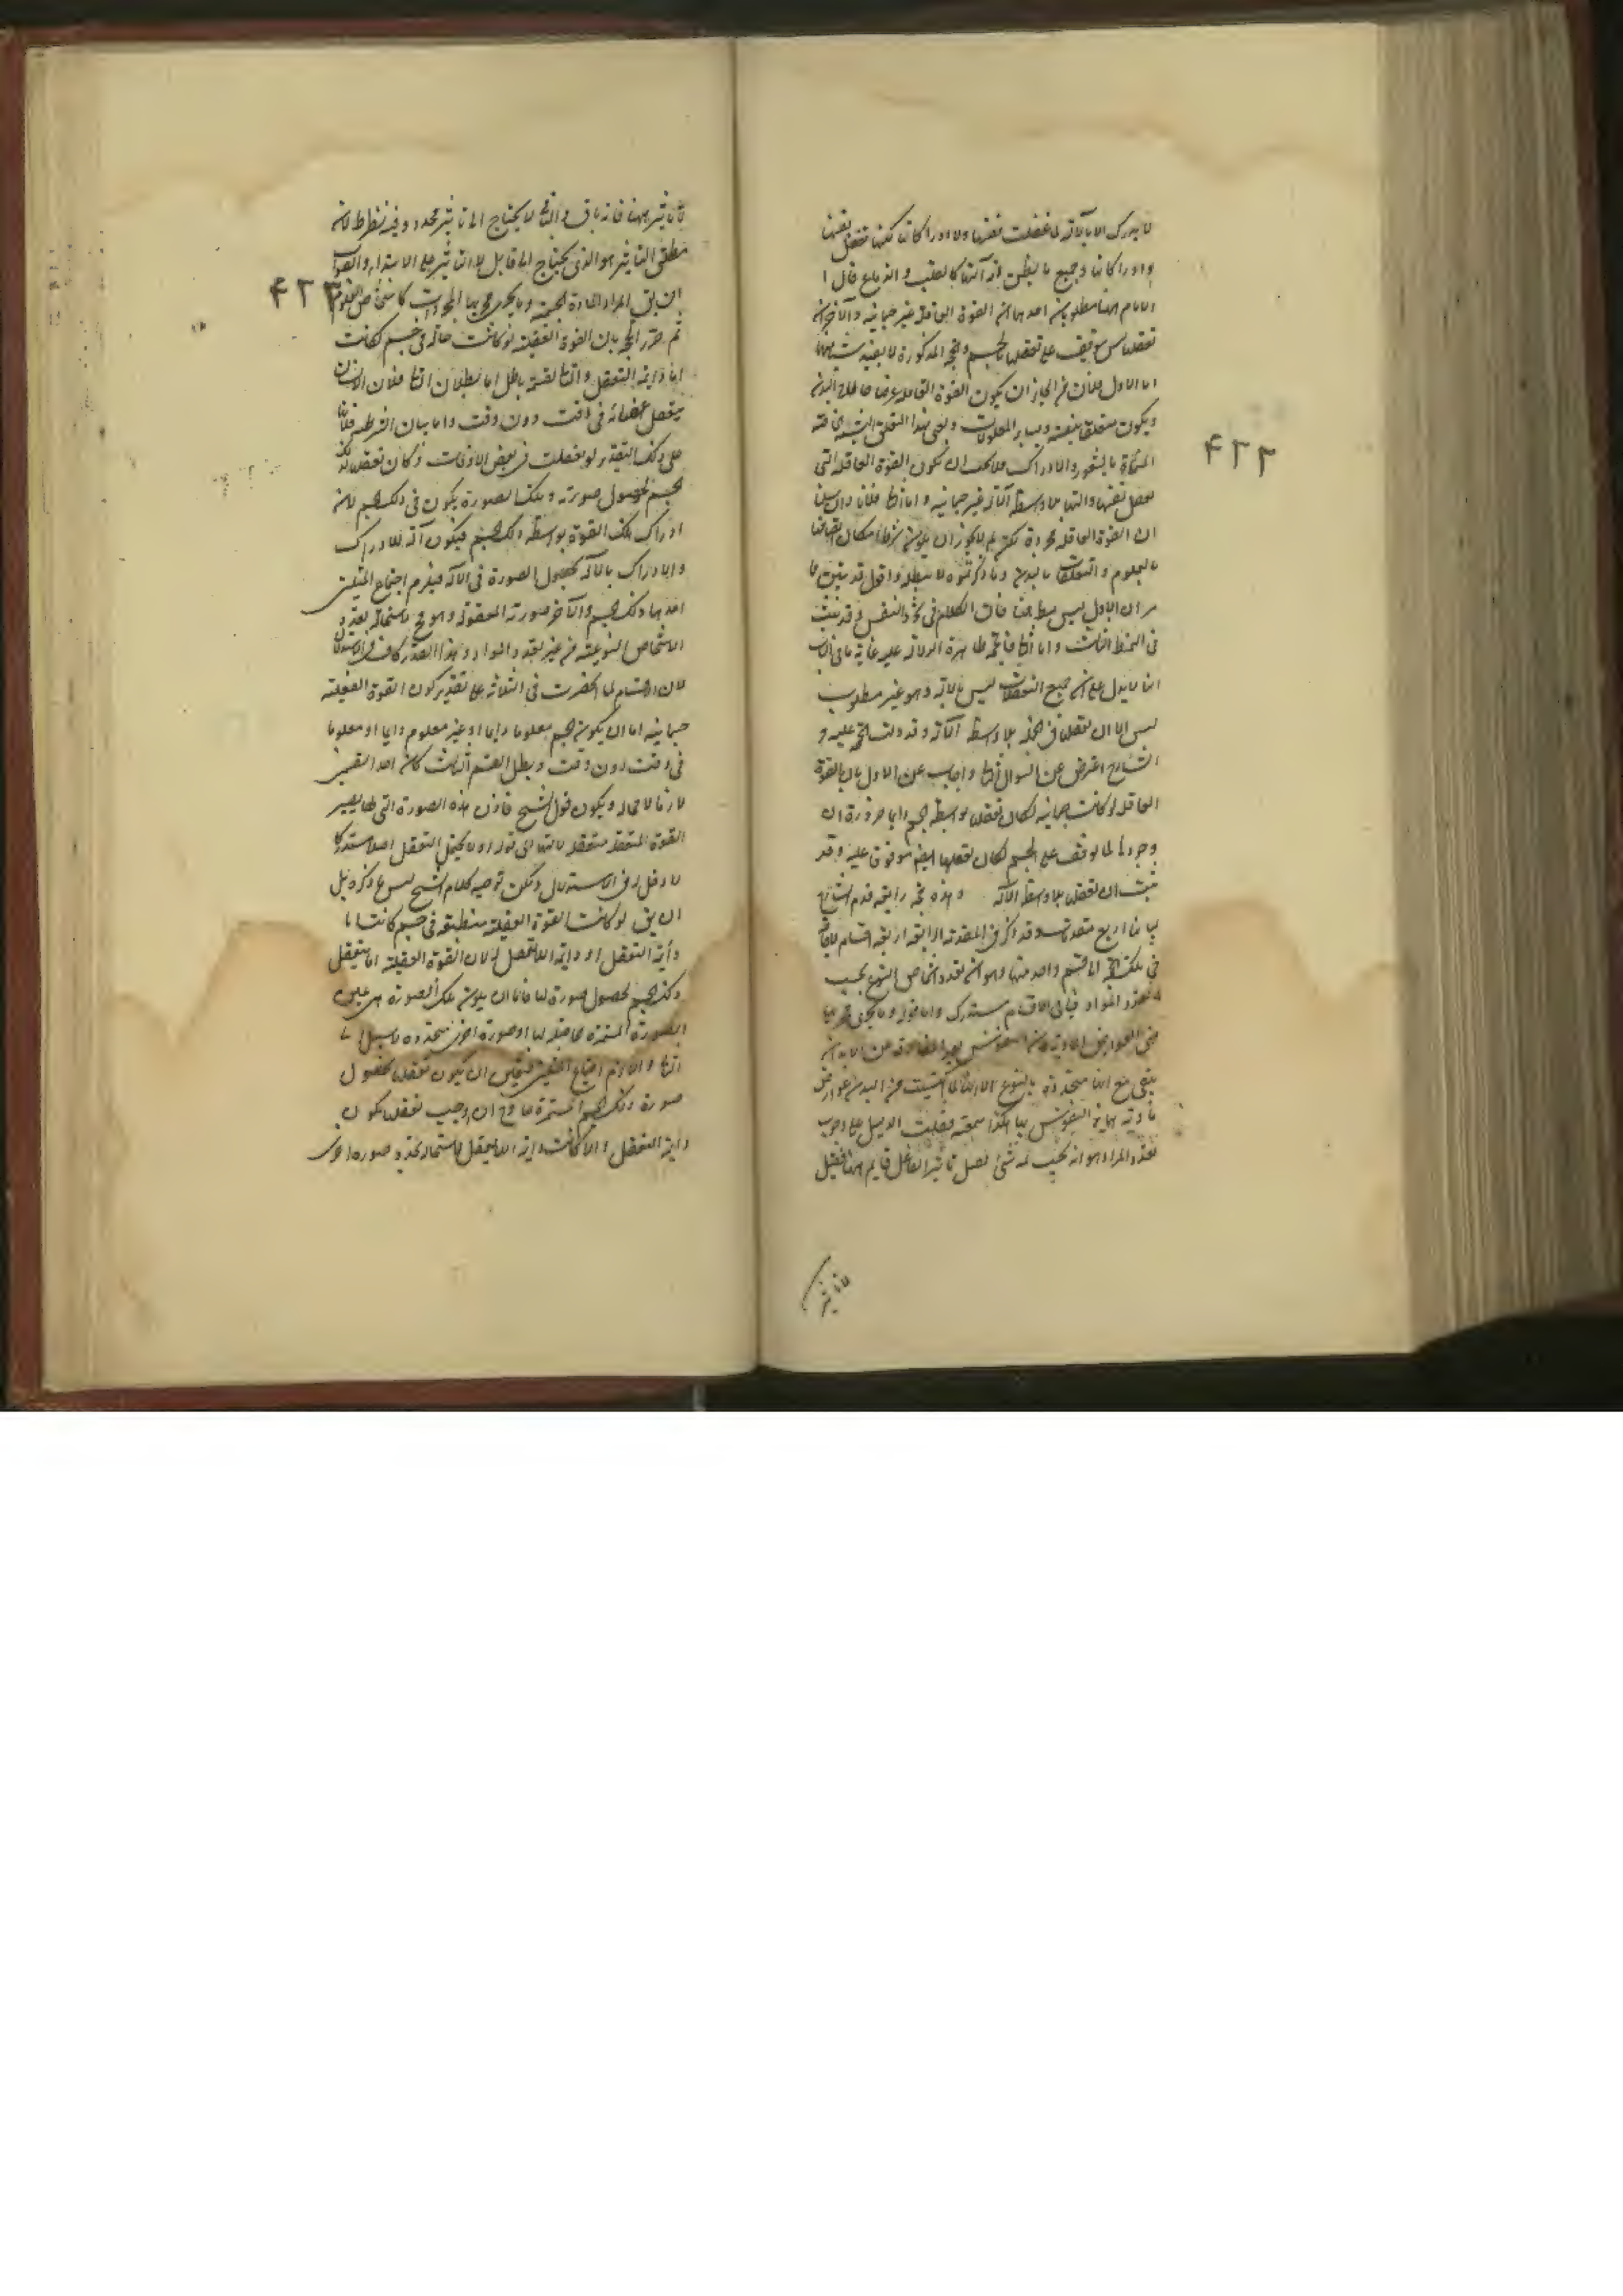 لا يدرك الا بآلاته لما عقلت نفسها ولا ادراكاتها لكنها تعقل نفسها
وادراكاتها وجميع ما يظن انه آلتها كالقلب والدماغ قال ا
الامام ههنا مطلوبان احدهما ان القوة العاقلة غير جسمانية والآخر ان
تعقلها ليس يتوقف على تعقلها بالجسم والحجة المذكورة لا يفيد شيئا منهما
اما الاول فلان من الجائز ان يكون القوة العاقلة عرضا حالا في البدن
ويكون متعلقا بنفسه وبسائر المعلومات ويعني بهذا التعلق النسبة الخاصة
المسماة بالشعور والادراك فلا يجب ان تكون القوة العاقلة التي
تعقل نفسها وآلتها بلا واسطة آلة غير جسمانية واما الثاني فلانا وان سلمنا
ان القوة العاقلة مجردة لكن لم لا يجوز ان يكون شرط امكان اتصافها
بالعلوم والتعقلات بالبدن وما ذكرتموه لا يبطله واقول قد تبين مما
مر ان الاول ليس مط ههنا فان الكلام في تجرد النفس وقد ثبت
في النمط الثالث واما الثاني فالحجة ظاهرة الدلالة عليه غاية ما في الباب
انها لا يدل على ان جميع التعقلات ليس بآلاته وهو غير مطلوب
ليس الا ان تعقلها في الجملة بلا واسطة الآلة وقد دلت الحجة عليه و
الشارح اعرض عن السؤال الثاني واجاب عن الاول بان القوة
العاقلة لو كانت جسمانية لكان تعقلها بواسطة الجسم دايما ضرورة ان
وجودها لما توقف على الجسم لكان تعقلها ايضا موقوفا عليه وقد
ثبت ان تعقلها بلا واسطة الآلة وهذه حجة رابعة قدم الشارح
بيانها اربع مقدمات وقد ذكر في المقدمة الرابعة اربعة اقسام لا حاجة
في تلك الحجة الا الى قسم واحد منها وهو ان تعدد اشخاص النوع بحسب
تعدد المواد فباقي الاقسام مستدرك واما قوله وما يجري مجريها
فهي العوارض المادية فان النفوس بعد المفارقة عن الابدان
تبقى مع انها متحدة بالنوع الا انها لما اكتسبت من البدن عوارض
مادية تمايز النفوس بها هكذا سمعته فقلت الدليل على وجوب
تعدد المواد هو انه يجب ثمه شئ يقبل تأثير الفاعل قايم ههنا فقيل
لا تاثير
لا تأثير ههنا فانه باق والباقي لا يحتاج الى تأثير مجدد وفيه نظر ظ لان
مطلق التأثير هو الذي يحتاج الى قابل لا التأثير على الابتداء والصواب
ان يق المراد المادة الجسمية وما يجري مجريها المجردات كاشخاص العلوم
ثم حرر الحجة بان القوة العقلية لو كانت حالة في جسم لكانت
اما دائمة التعقل والثاني بقسميه باطل اما بطلان الثاني فلان الانسان
يتعقل اعضائه في وقت دون وقت واما بيان الشرطية فلانها
على ذلك التقدير لو تعقلت في بعض الاوقات وكان تعقلها لذلك
الجسم لحصول صورته وتلك الصورة يكون في ذلك الجسم لان
ادراك تلك القوة بواسطة ذلك الجسم فيكون آلة للادراك
والادراك بالآلة بحصول الصورة في الآلة فيلزم اجتماع المثلين
احدهما ذلك الجسم والآخر صورته المعقولة وهو مح لاستحالة تعدد
الاشخاص النوعية من غير تعدد المواد وهذا القدر كاف في الاستدلال
لان الاقسام لما انحصرت في الثلاثة على تقدير كون القوة العقلية
جسمانية اما ان يكون الجسم معلوما دايما او غير معلوم دايما او معلوما
في وقت دون وقت وبطل القسم الثالث كان احد القسمين
لازما لا محالة ويكون قول الشيخ فاذن هذه الصورة التي بها يصير
القوة المتعقلة متعقلة لآلتها الى قوله او لا يحتمل التعقل اصلا مستدركا
لا دخل له في الاستدلال ولكن توجيه كلام الشيخ ليس ما ذكره بل
ان يق لو كانت القوة العقلية منطبعة في جسم كانت اما
دائمة التعقل او دائمة اللاتعقل لان القوة العقلية انما تتعقل
ذلك الجسم لحصول صورة لها فاما ان يكون تلك الصورة هي عين
الصورة المستمرة حاصلة لها او صورة اخرى متجددة لا سبيل الى
الثاني والا لزم اجتماع المثلين فتعين ان يكون تعقلها بحصول
صورة ذلك الجسم المستمرة معا وح ان وجب تعقلها يكون
دايمة التعقل والا كانت دايمة اللاتعقل لاستحالة تجدد صورة اخرى
٤٢٢
٤٢٣